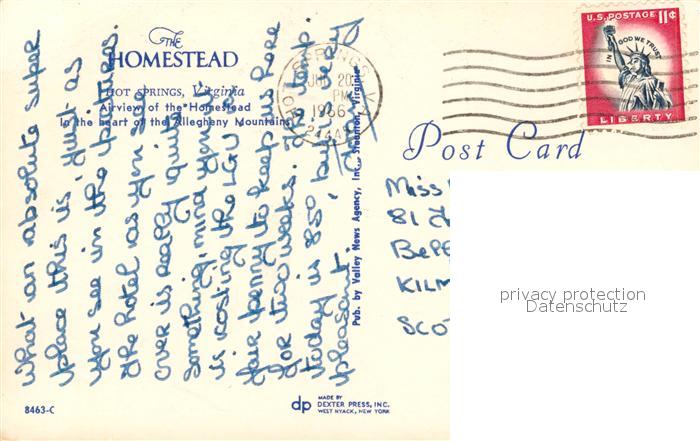 The
HOMESTEAD
HOT SPRINGS, Virginia
Airview of the Homestead
In the heart of the Allegheny Mountains
What an absolute super
place this is. Just as
you see in the pictures.
The hotel as you see
over is really quite
something, mind you it
is costing the LGU a
fair penny to keep us here
for two weeks. The temp.
today is 85° but very
pleasant.
Pub. by Valley News Agency, Inc., Staunton, Virginia
HOT SPRINGS, VA
JUL 20
PM
1966
24445
U.S. POSTAGE 11¢
IN GOD WE TRUST
LIBERTY
Post Card
Miss
81
KILM
SCOT
privacy protection
Datenschutz
8463-C
dp
MADE BY
DEXTER PRESS, INC.
WEST NYACK, NEW YORK